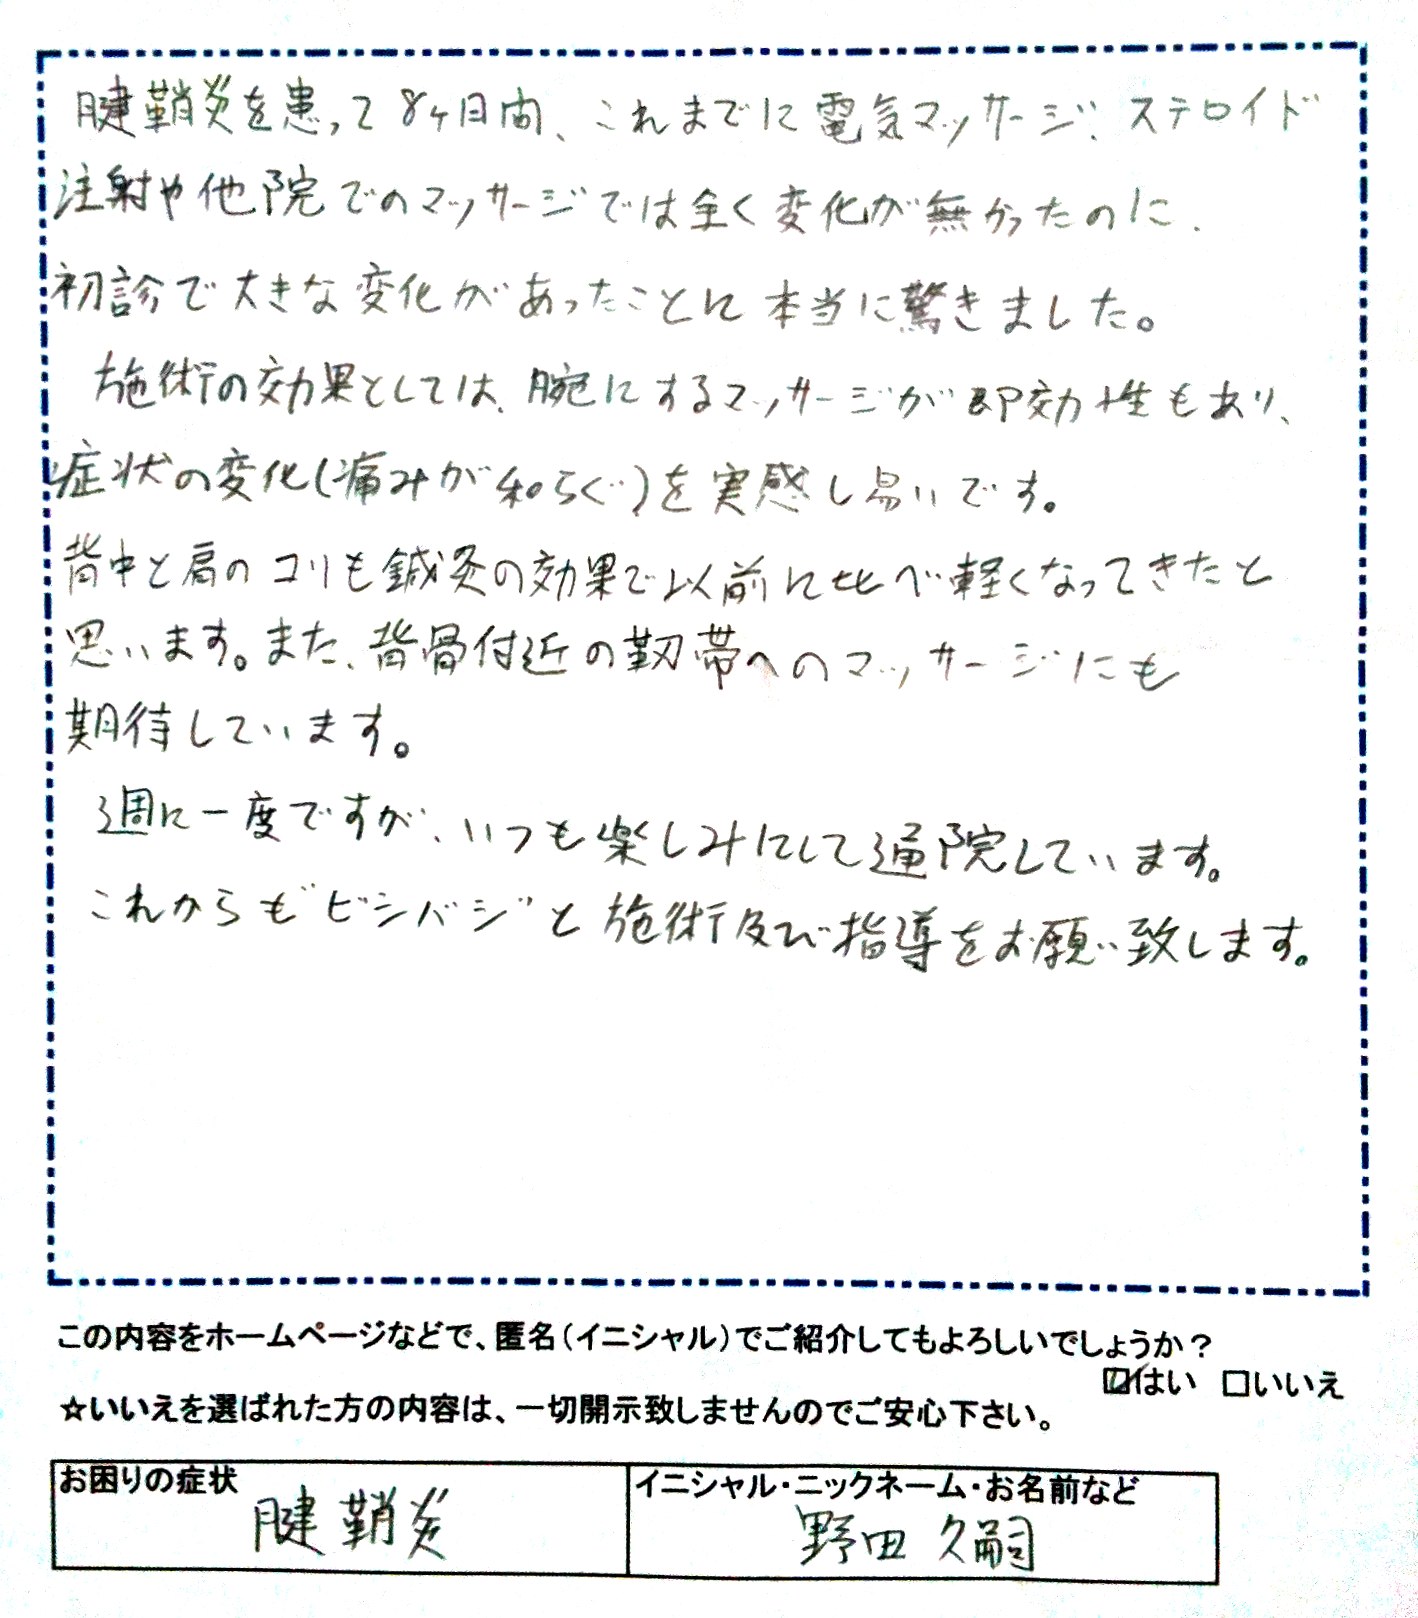 腱鞘炎を患って8ヶ月間、これまでに電気マッサージ、ステロイド
注射や他院でのマッサージでは全く変化が無かったのに、
初診で大きな変化があったことに本当に驚きました。
施術の効果としては、腕にするマッサージが即効性もあり、
症状の変化(痛みが和らぐ)を実感し易いです。
背中と肩のコリも鍼灸の効果で以前に比べ軽くなってきたと
思います。また、背骨付近の靭帯へのマッサージにも
期待しています。
週に一度ですが、いつも楽しみにして通院しています。
これからも"ビシバシ"と施術及び指導をお願い致します。
この内容をホームページなどで、匿名(イニシャル)でご紹介してもよろしいでしょうか?
☑はい □いいえ
☆いいえを選ばれた方の内容は、一切開示致しませんのでご安心下さい。
お困りの症状
腱鞘炎
イニシャル・ニックネーム・お名前など
野田 久嗣